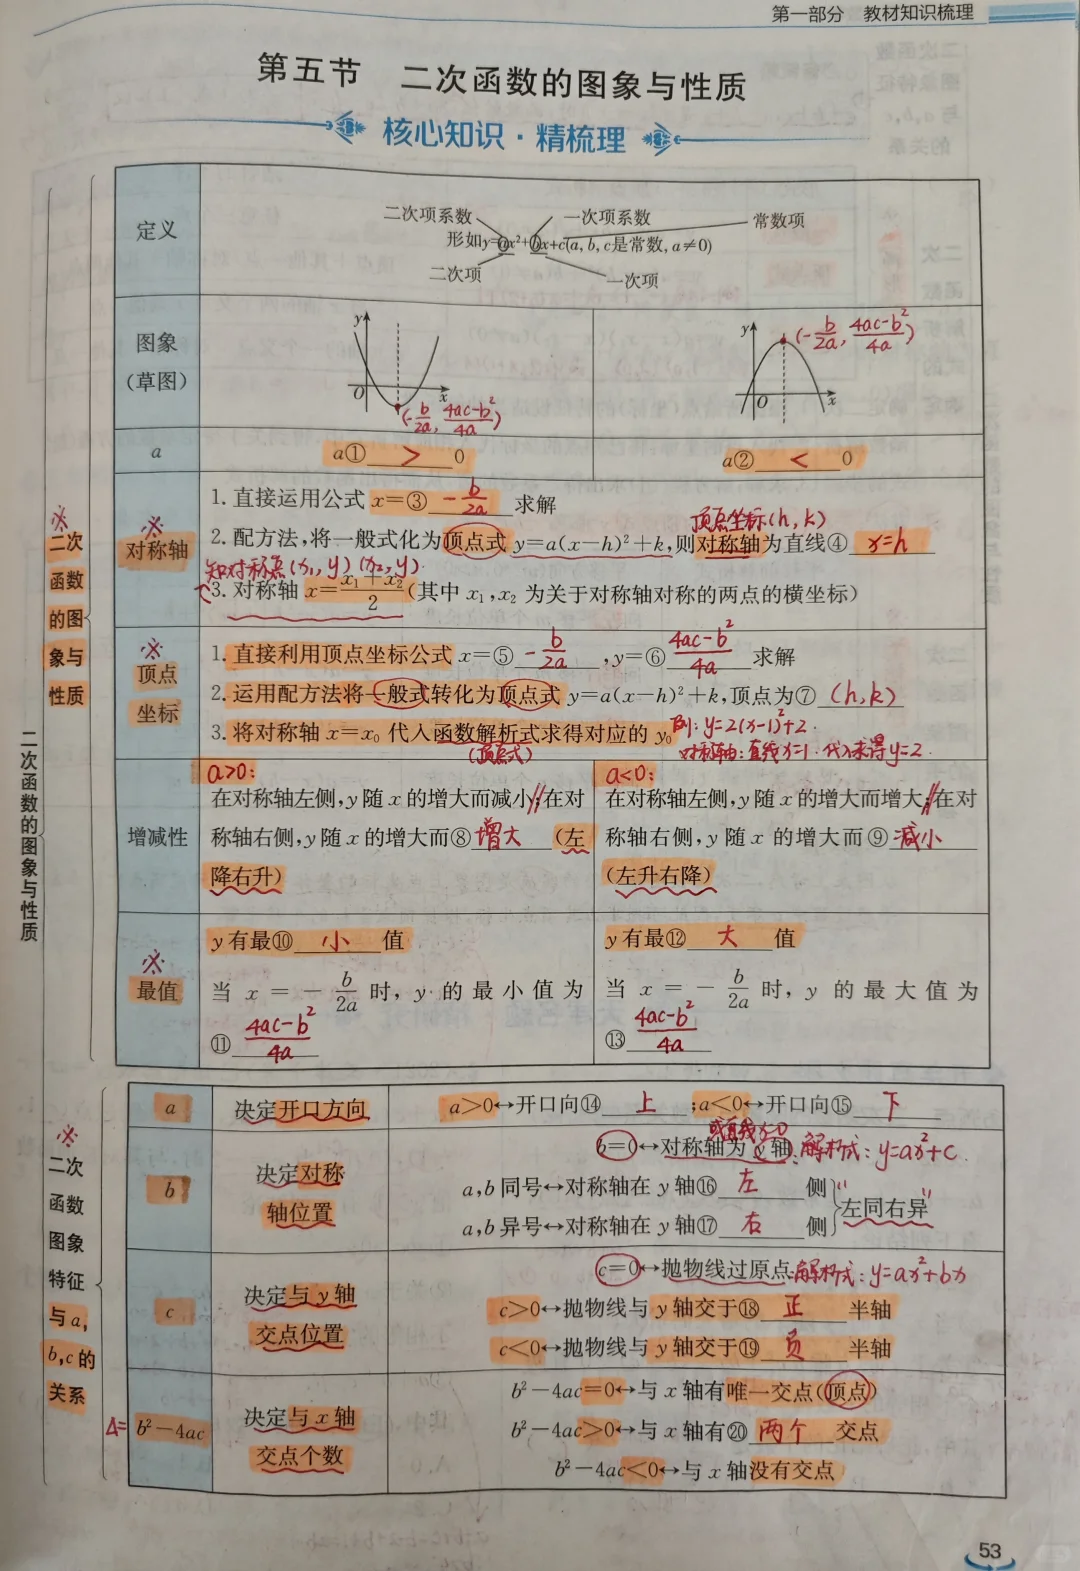 第一部分 教材知识梳理
第五节 二次函数的图象与性质
核心知识·精梳理
二次函数的图象与性质
※二次函数的图象与性质
定义
二次项系数 一次项系数 常数项
形如y=ax²+bx+c(a, b, c是常数, a≠0)
二次项 一次项
图象
(草图)
y O x
(-b/2a, 4ac-b²/4a)
y O x
(-b/2a, 4ac-b²/4a)
a
a① > 0
a② < 0
※
对称轴
1. 直接运用公式 x=③ -b/2a 求解
顶点坐标(h, k)
2. 配方法,将一般式化为顶点式 y=a(x-h)²+k,则对称轴为直线④ x=h
知对称点(x₁, y) (x₂, y)
3. 对称轴 x=(x₁+x₂)/2(其中 x₁,x₂ 为关于对称轴对称的两点的横坐标)
※
顶点
坐标
1. 直接利用顶点坐标公式 x=⑤ -b/2a ,y=⑥ 4ac-b²/4a 求解
2. 运用配方法将一般式转化为顶点式 y=a(x-h)²+k,顶点为⑦ (h,k)
3. 将对称轴 x=x₀ 代入函数解析式求得对应的 y₀ 例: y=2(x-1)²+2.
(顶点式) 对称轴:直线x=1. 代入求得y=2.
增减性
a>0:
在对称轴左侧,y 随 x 的增大而减小;在对
称轴右侧,y 随 x 的增大而⑧ 增大 (左
降右升)
a<0:
在对称轴左侧,y 随 x 的增大而增大;在对
称轴右侧,y 随 x 的增大而⑨ 减小
(左升右降)
※
最值
y 有最⑩ 小 值
当 x=-b/2a 时, y 的最小值为
⑪ 4ac-b²/4a
y 有最⑫ 大 值
当 x=-b/2a 时, y 的最大值为
⑬ 4ac-b²/4a
※
二次函数图象特征与a,b,c的关系
a 决定开口方向 a>0↔开口向⑭ 上 ;a<0↔开口向⑮ 下
或直线x=0
b 决定对称轴位置
b=0↔对称轴为 y 轴. 解析式: y=ax²+c.
a,b 同号↔对称轴在 y 轴⑯ 左 侧
a,b 异号↔对称轴在 y 轴⑰ 右 侧
"左同右异"
c 决定与 y 轴交点位置
c=0↔抛物线过原点.解析式: y=ax²+bx
c>0↔抛物线与 y 轴交于⑱ 正 半轴
c<0↔抛物线与 y 轴交于⑲ 负 半轴
Δ= b²-4ac 决定与 x 轴交点个数
b²-4ac=0↔与 x 轴有唯一交点(顶点)
b²-4ac>0↔与 x 轴有⑳ 两个 交点
b²-4ac<0↔与 x 轴没有交点
53